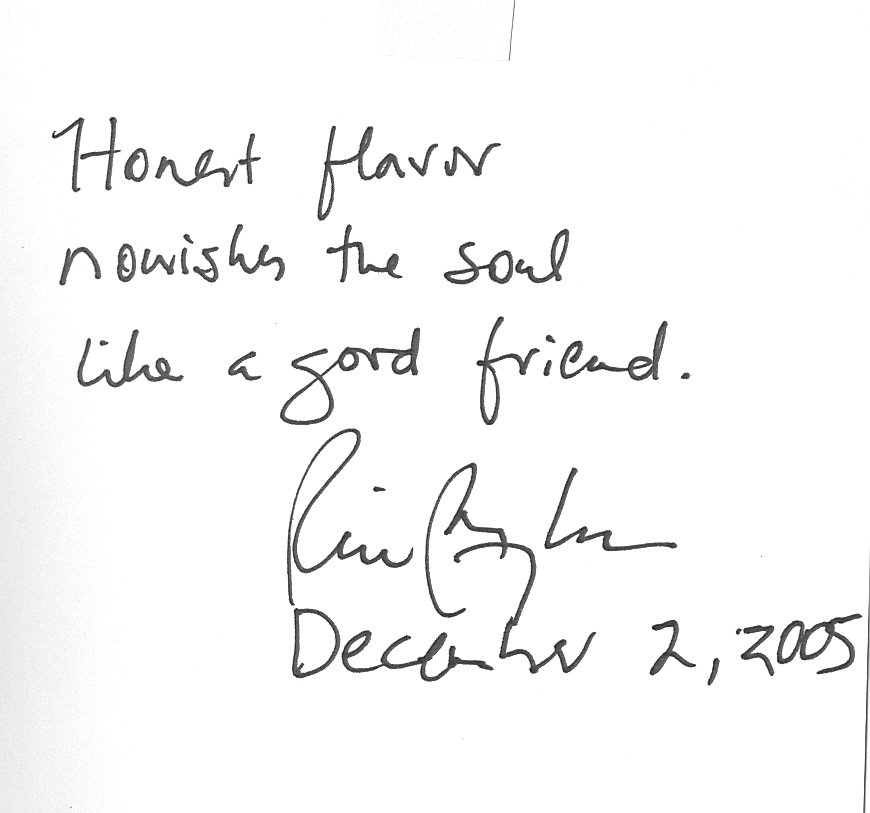 Honest flavor
nourishes the soul
like a good friend.
December 2, 2005